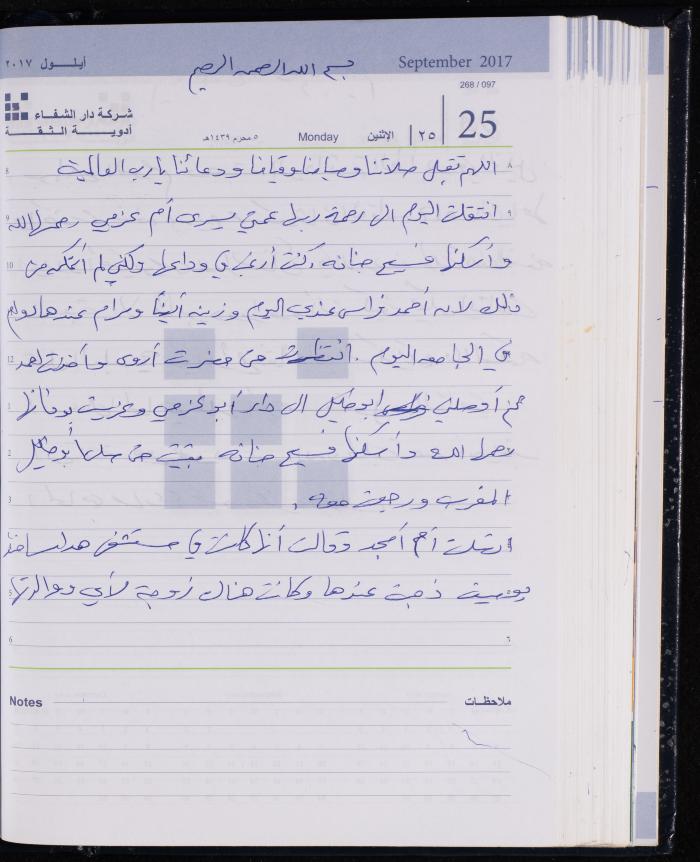 أيلول ٢٠١٧
بسم الله الرحمن الرحيم
September 2017
268 / 097
شركة دار الشفاء
أدوية الثقة
٥ محرم ١٤٣٩هـ
Monday
الإثنين
٢٥
25
اللهم تقبل صلاتنا وصيامنا وقيامنا ودعائنا يا رب العالمين
انتقلت اليوم الى رحمة ربها عمتي يسرى أم عزمي رحمها الله
وأسكنها فسيح جنانه، كنت أرغب في وداعها ولكني لم أتمكن من
ذلك لان أحمد فراس عندي اليوم وزينه أيضاً ومرام عندها دوام
في الجامعه اليوم. انتظرت حتى حضرت أروى وأخذت احمد
ثم أوصلني ابو الى دار أبو عزمي وعزيت بوفاتها
رحمها الله وأسكنها فسيح جنانه بقيت حتى صلى أبو
المغرب ورجعت معه.
اتصلت أم أمجد وقالت أنها كانت في مستشفى
ذهبت عندها وكانت هناك زوجة لأي ووالدتها
8
9
10
12
1
2
3
5
6
Notes
ملاحظات